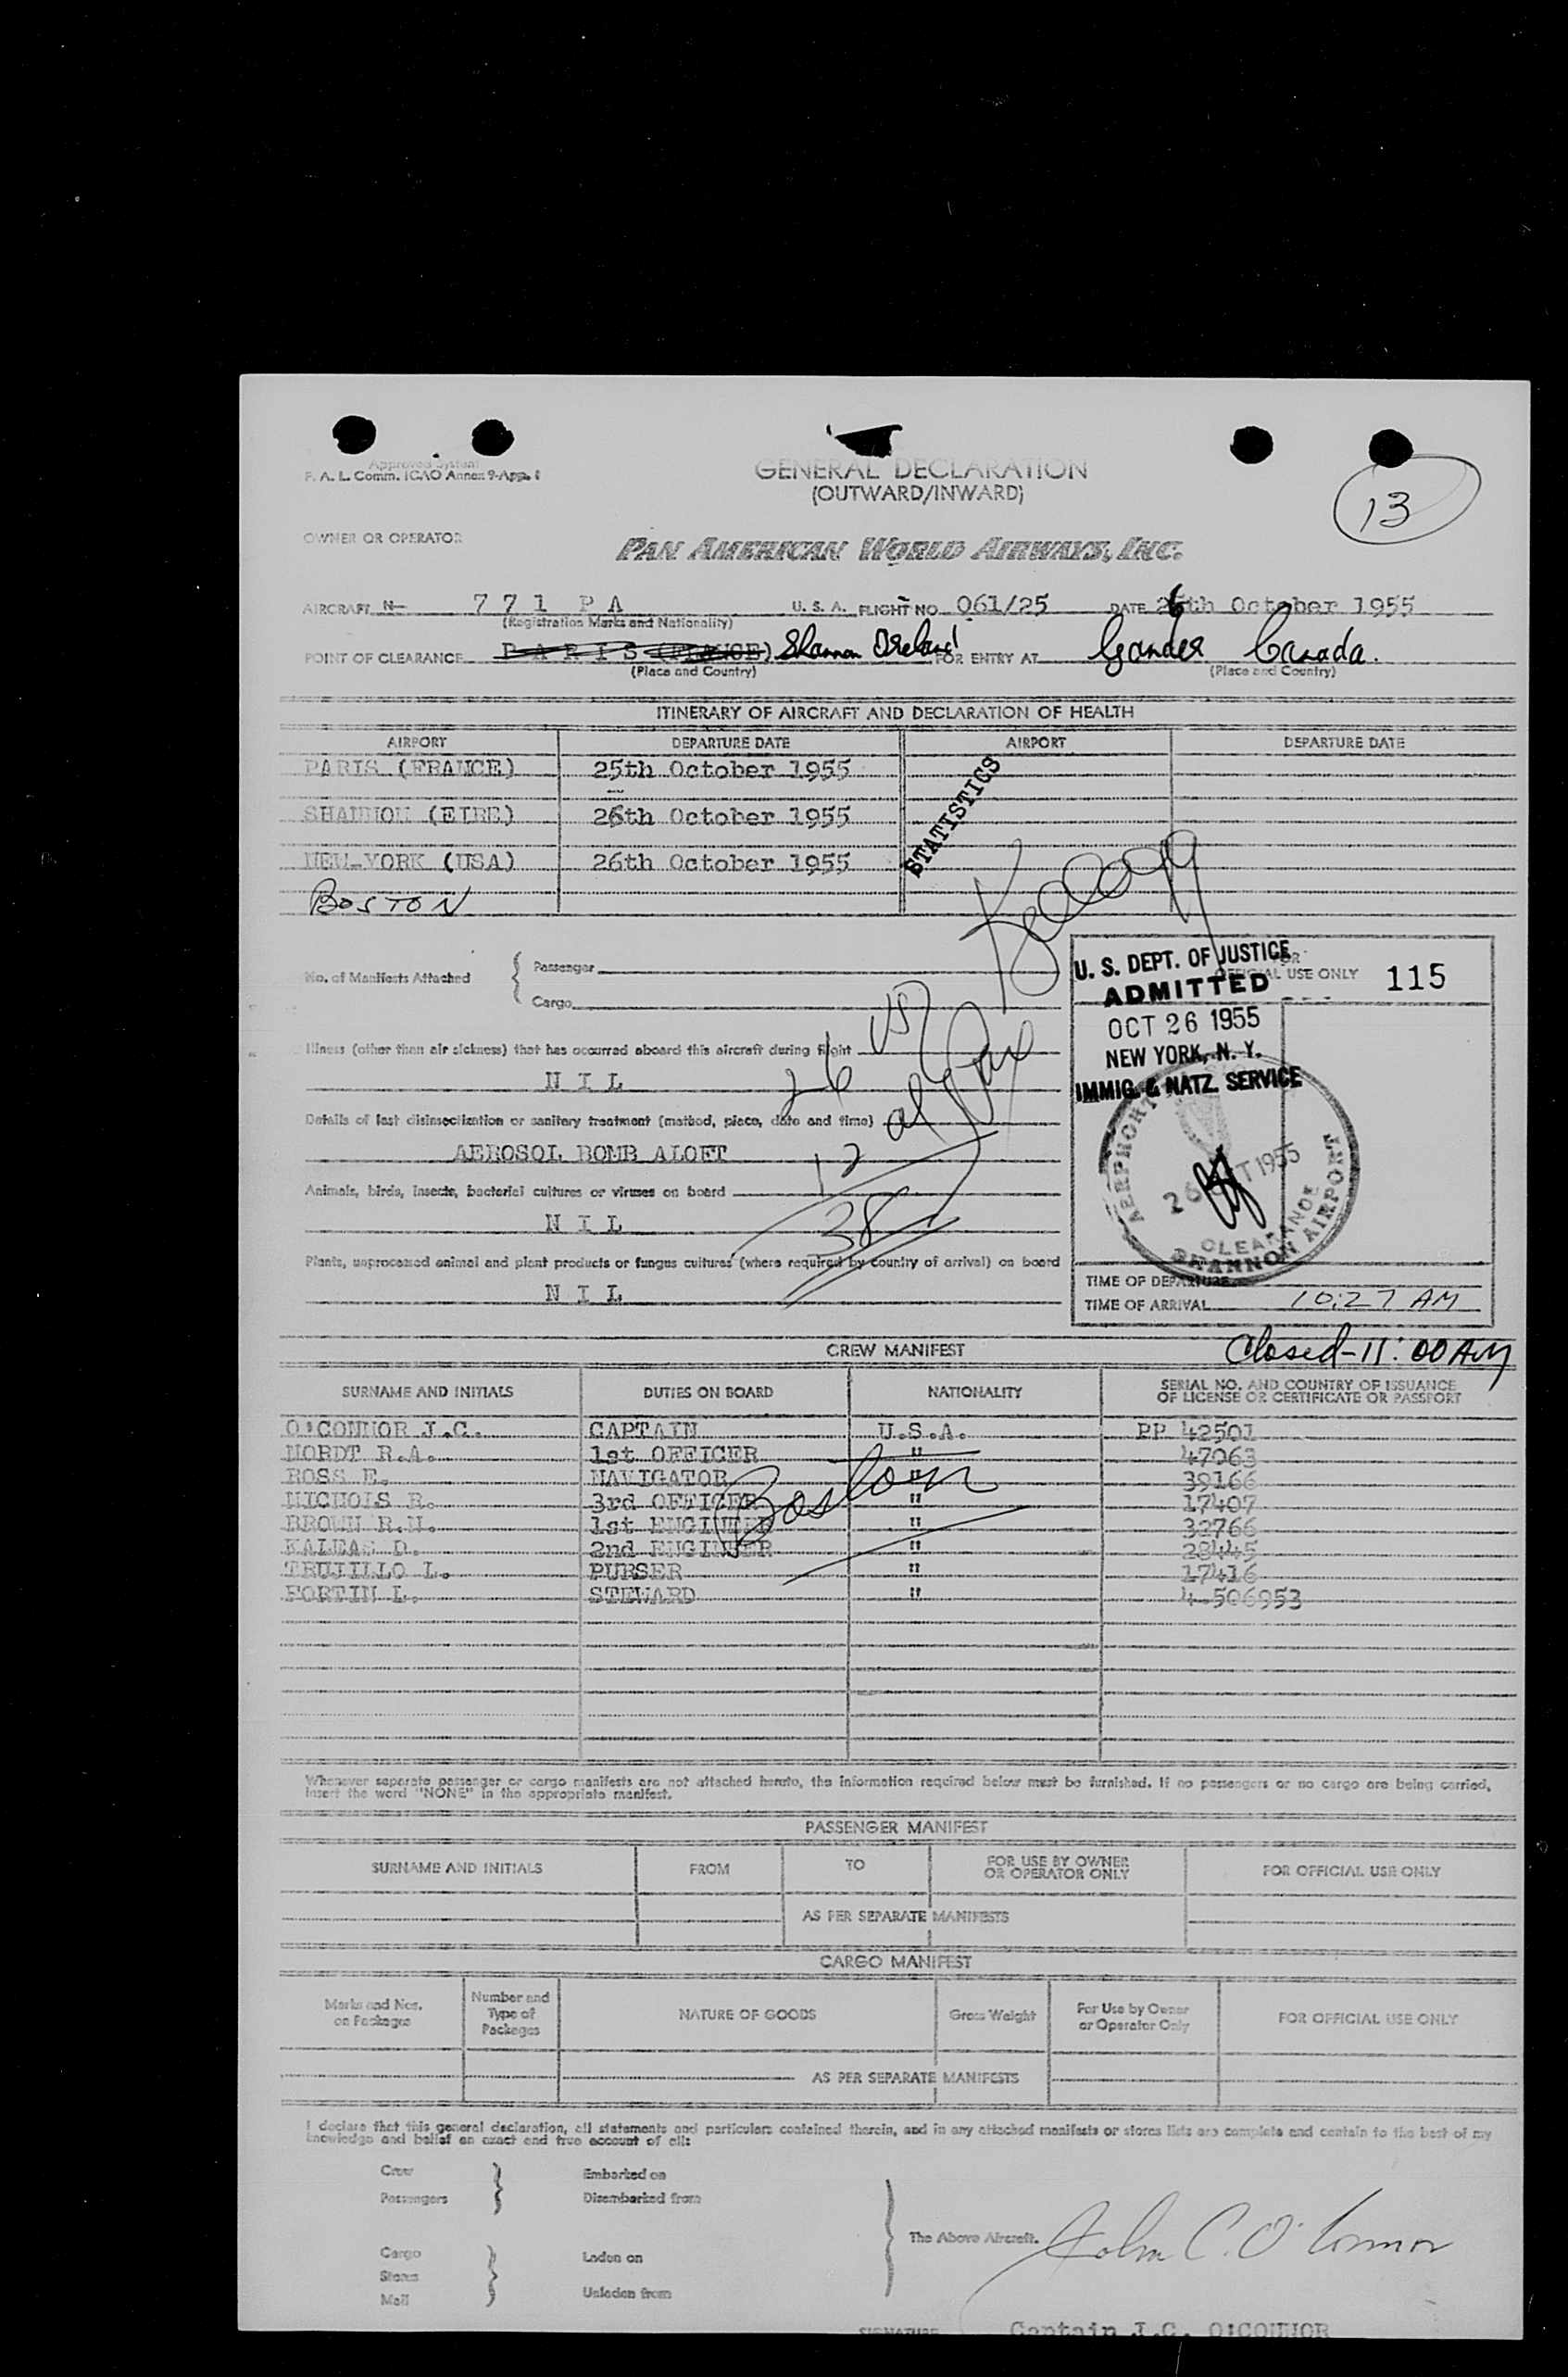 Approved System
F. A. L. Comm. ICAO Annex 9-App. 1
GENERAL DECLARATION
(OUTWARD/INWARD)
13
OWNER OR OPERATOR
PAN AMERICAN WORLD AIRWAYS, INC.
AIRCRAFT N- 771 PA U. S. A. FLIGHT NO. 061/25 DATE 26th October 1955
(Registration Marks and Nationality)
POINT OF CLEARANCE P A R I S (FRANCE) Shannon Ireland FOR ENTRY AT Gander Canada.
(Place and Country) (Place and Country)
ITINERARY OF AIRCRAFT AND DECLARATION OF HEALTH
AIRPORT DEPARTURE DATE AIRPORT DEPARTURE DATE
PARIS (FRANCE) 25th October 1955
STATISTICS
SHANNON (EIRE) 26th October 1955
NEW-YORK (USA) 26th October 1955
BOSTON
No. of Manifests Attached
Passenger
Cargo
FOR OFFICIAL USE ONLY 115
U. S. DEPT. OF JUSTICE
ADMITTED
OCT 26 1955
NEW YORK, N. Y.
IMMIG. & NATZ. SERVICE
Illness (other than air sickness) that has occurred aboard this aircraft during flight
N I L
26
Details of last disinsectization or sanitary treatment (method, place, date and time)
AEROSOL BOMB ALOFT
12
Animals, birds, insects, bacterial cultures or viruses on board
N I L
38
Plants, unprocessed animal and plant products or fungus cultures (where required by country of arrival) on board
N I L
AERPHORT
26 OCT 1955
CLEARANCE
SHANNON AIRPORT
TIME OF DEPARTURE
TIME OF ARRIVAL 10:27 AM
Closed-11:00 AM
CREW MANIFEST
SURNAME AND INITIALS DUTIES ON BOARD NATIONALITY SERIAL NO. AND COUNTRY OF ISSUANCE OF LICENSE OR CERTIFICATE OR PASSPORT
O'CONNOR J.C. CAPTAIN U.S.A. PP 42501
NORDT R.A. 1st OFFICER " 47063
ROSS E. NAVIGATOR " 39166
NICHOLS R. 3rd OFFICER " 17407
BROWN R.N. 1st ENGINEER " 32766
KALEAS D. 2nd ENGINEER " 28445
TRUJILLO L. PURSER " 17416
FORTIN L. STEWARD " 4-506953
Boston
Whenever separate passenger or cargo manifests are not attached hereto, the information required below must be furnished. If no passengers or no cargo are being carried,
insert the word "NONE" in the appropriate manifest.
PASSENGER MANIFEST
SURNAME AND INITIALS FROM TO FOR USE BY OWNER OR OPERATOR ONLY FOR OFFICIAL USE ONLY
AS PER SEPARATE MANIFESTS
CARGO MANIFEST
Marks and Nos. on Packages Number and Type of Packages NATURE OF GOODS Gross Weight For Use by Owner or Operator Only FOR OFFICIAL USE ONLY
AS PER SEPARATE MANIFESTS
I declare that this general declaration, all statements and particulars contained therein, and in any attached manifests or stores lists are complete and contain to the best of my
knowledge and belief an exact and true account of all:
Crew Embarked on
Passengers Disembarked from
The Above Aircraft. John C. O'Connor
Cargo Laden on
Stores
Mail Unladen from
SIGNATURE Captain J.C. O'CONNOR